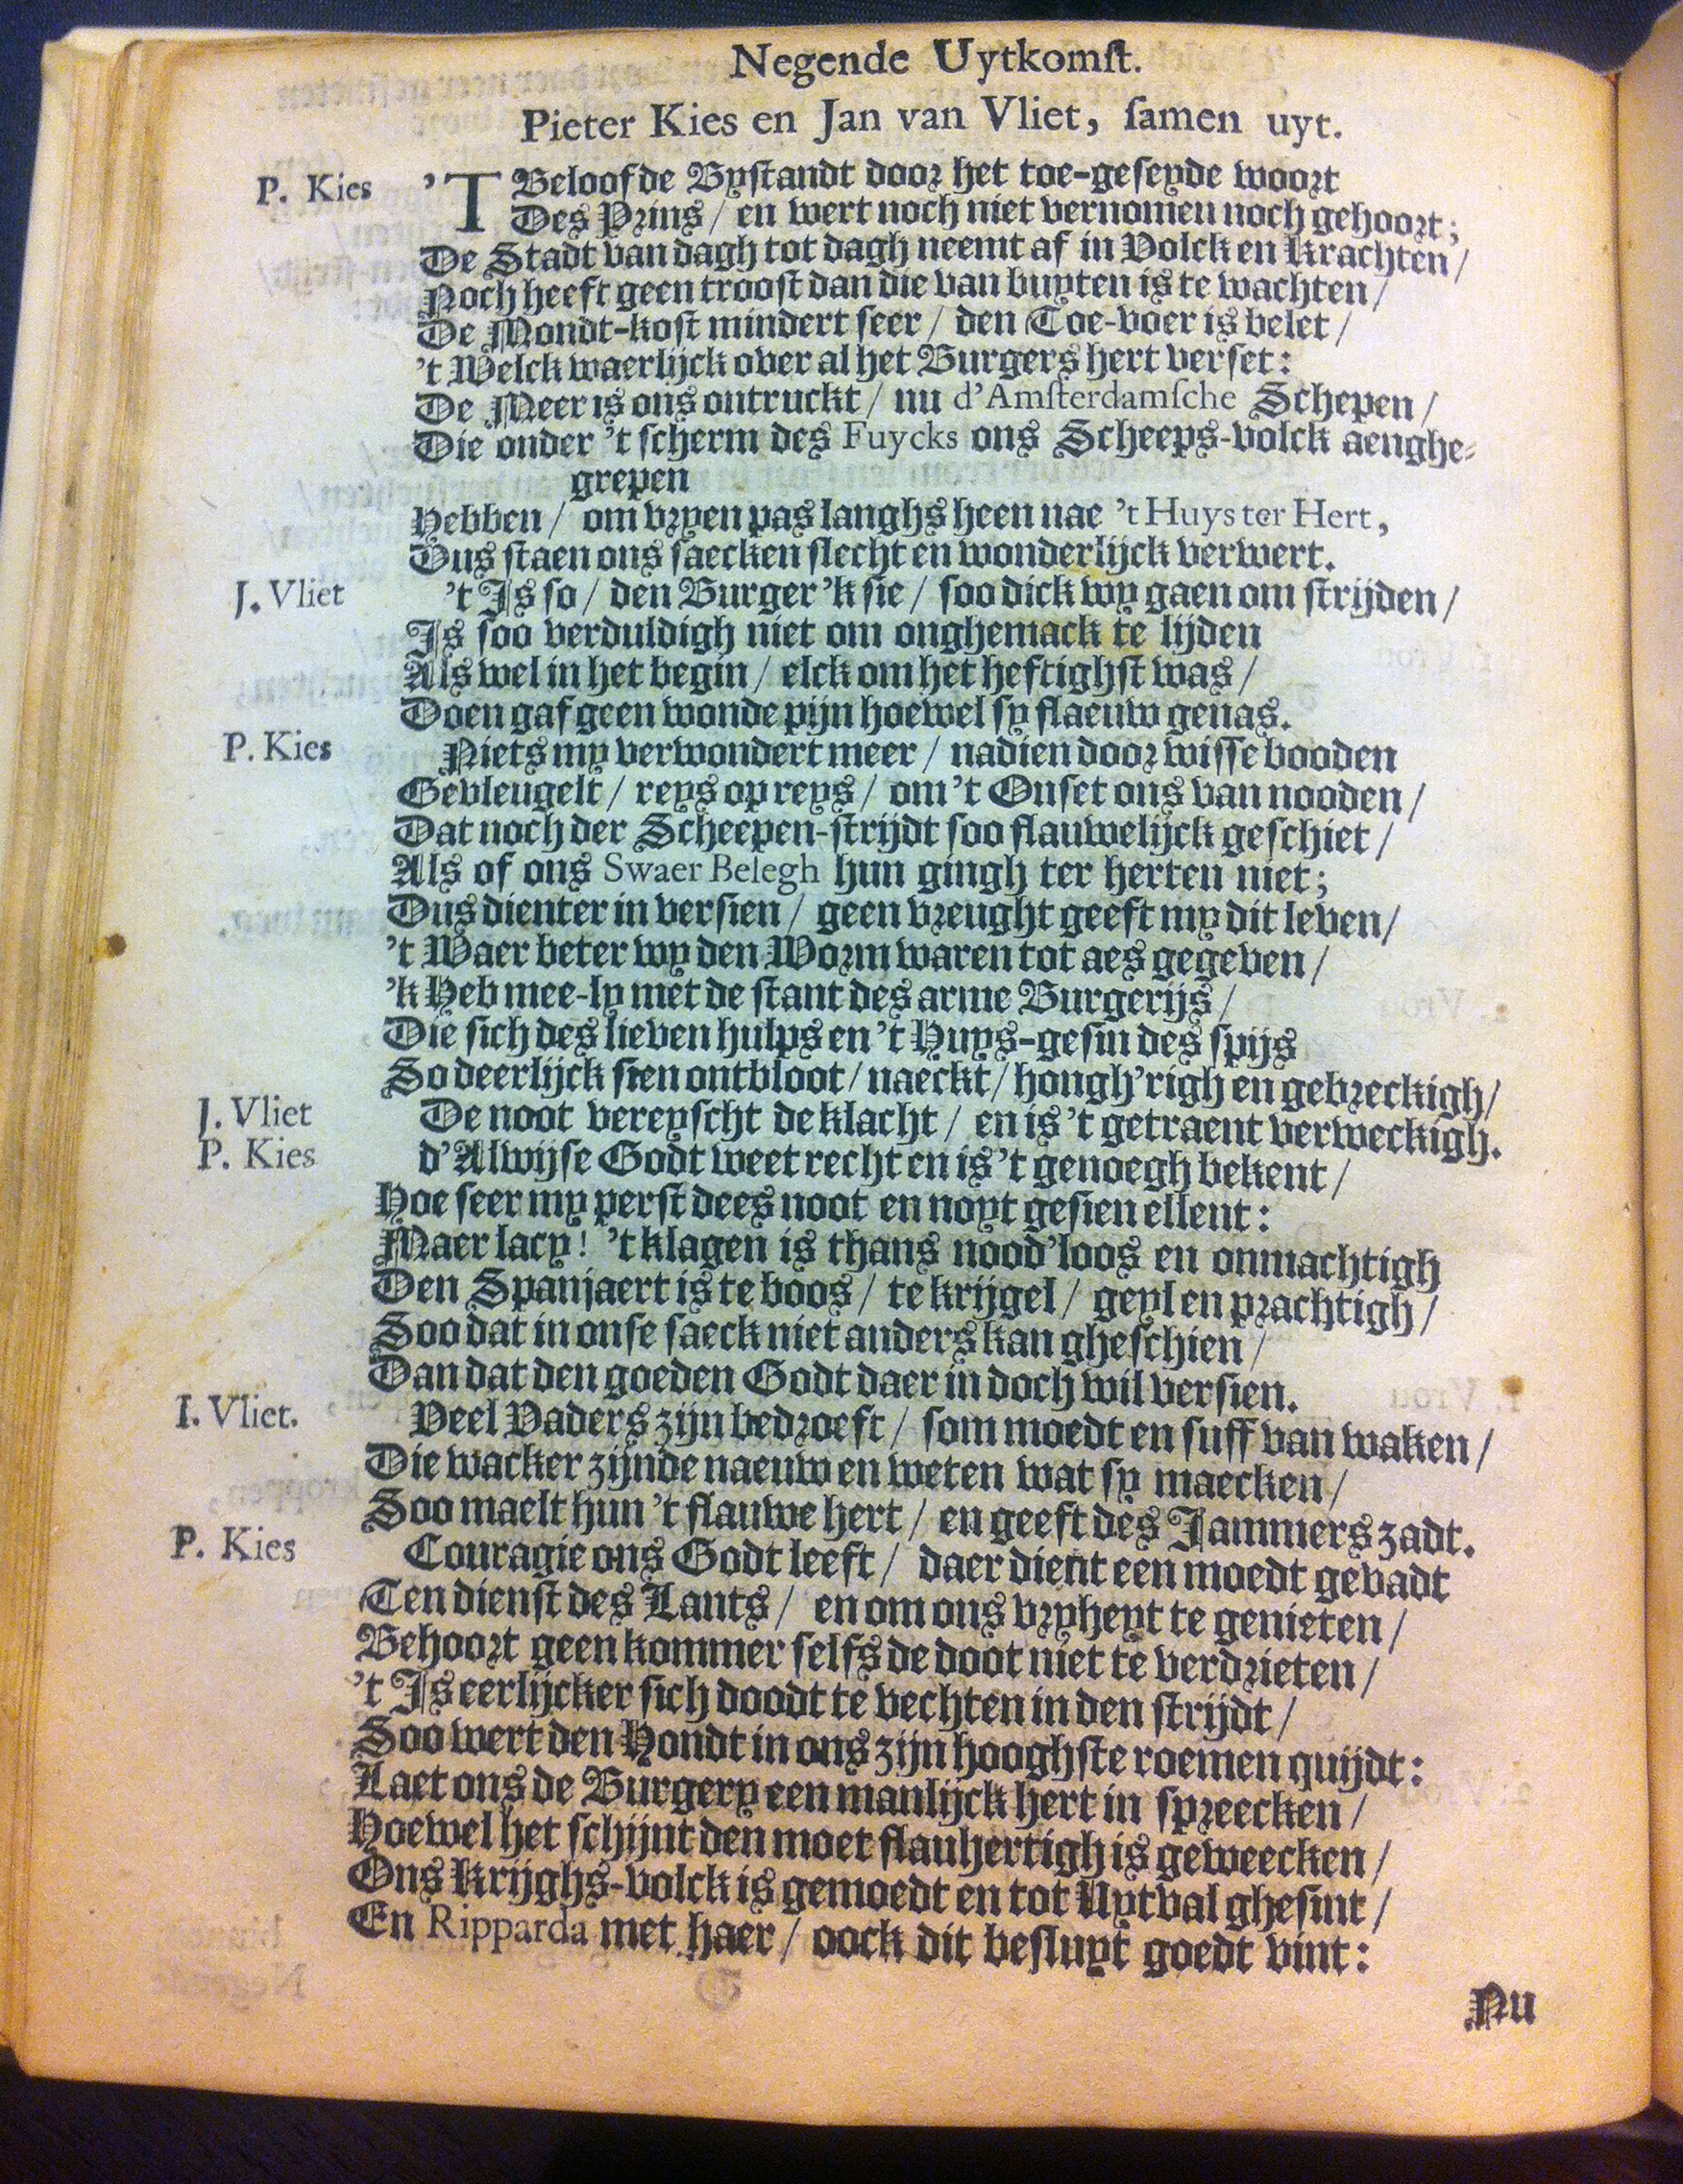 Negende Uytkomſt.
Pieter Kies en Jan van Vliet, ſamen uyt.
P. Kies 'T Beloofde Bystandt door het toe-geseyde woort
Des Prins / en wert noch niet vernomen noch gehoort;
De Stadt van dagh tot dagh neemt af in Volck en Krachten /
Noch heeft geen troost dan die van buyten is te wachten /
De Mondt-kost mindert seer / den Toe-voer is belet /
't Welck waerlijck over al het Burgers hert verset:
De Meer is ons ontruckt / nu d'Amſterdamſche Schepen /
Die onder 't scherm des Fuycks ons Scheeps-volck aenghe-
grepen
Hebben / om vryen pas langhs heen nae 't Huys ter Hert,
Dus staen ons saecken slecht en wonderlijck verwert.
J. Vliet 't Is so / den Burger 'k sie / soo dick wy gaen om strijden /
Is soo verduldigh niet om onghemack te lijden
Als wel in het begin / elck om het heftighst was /
Doen gaf geen wonde pijn hoewel sy flaeuw genas.
P. Kies Niets my verwondert meer / nadien door wisse booden
Gevleugelt / reys op reys / om 't Onset ons van nooden /
Dat noch der Scheepen-strijdt soo flauwelijck geschiet /
Als of ons Swaer Belegh hun gingh ter herten niet;
Dus dienter in versien / geen vreught geeft my dit leven /
't Waer beter wy den Worm waren tot aes gegeven /
'k Heb mee-ly met de stant des arme Burgerijs /
Die sich des lieven hulps en 't Huys-gesin des spijs
So deerlijck sien ontbloot / naeckt / hongh'righ en gebreckigh /
J. Vliet De noot vereyscht de klacht / en is 't getraent verweckigh.
P. Kies d'Alwijse Godt weet recht en is 't genoegh bekent /
Hoe seer my perst dees noot en noyt gesien ellent:
Maer lacy! 't klagen is thans nood'loos en onmachtigh
Den Spanjaert is te boos / te krijgel / geyl en prachtigh /
Soo dat in onse saeck niet anders kan gheschien /
Dan dat den goeden Godt daer in doch wil versien.
I. Vliet. Veel Vaders zijn bedroeft / som moedt en suff van waken /
Die wacker zijnde naeuw en weten wat sy maecken /
Soo maelt hun 't flauwe hert / en geeft des Jammers zadt.
P. Kies Couragie ons Godt leeft / daer dient een moedt gevadt
Ten dienst des Lants / en om ons vryheyt te genieten /
Behoort geen kommer selfs de doot niet te verdrieten /
't Is eerlijcker sich doodt te vechten in den strijdt /
Soo wert den Hondt in ons zijn hooghste roemen quijdt:
Laet ons de Burgery een manlijck hert in spreecken /
Hoewel het schijnt den moet flauhertigh is geweecken /
Ons Krijghs-volck is gemoedt en tot Uytval ghesint /
En Ripparda met haer / oock dit besluyt goedt vint:
Nu